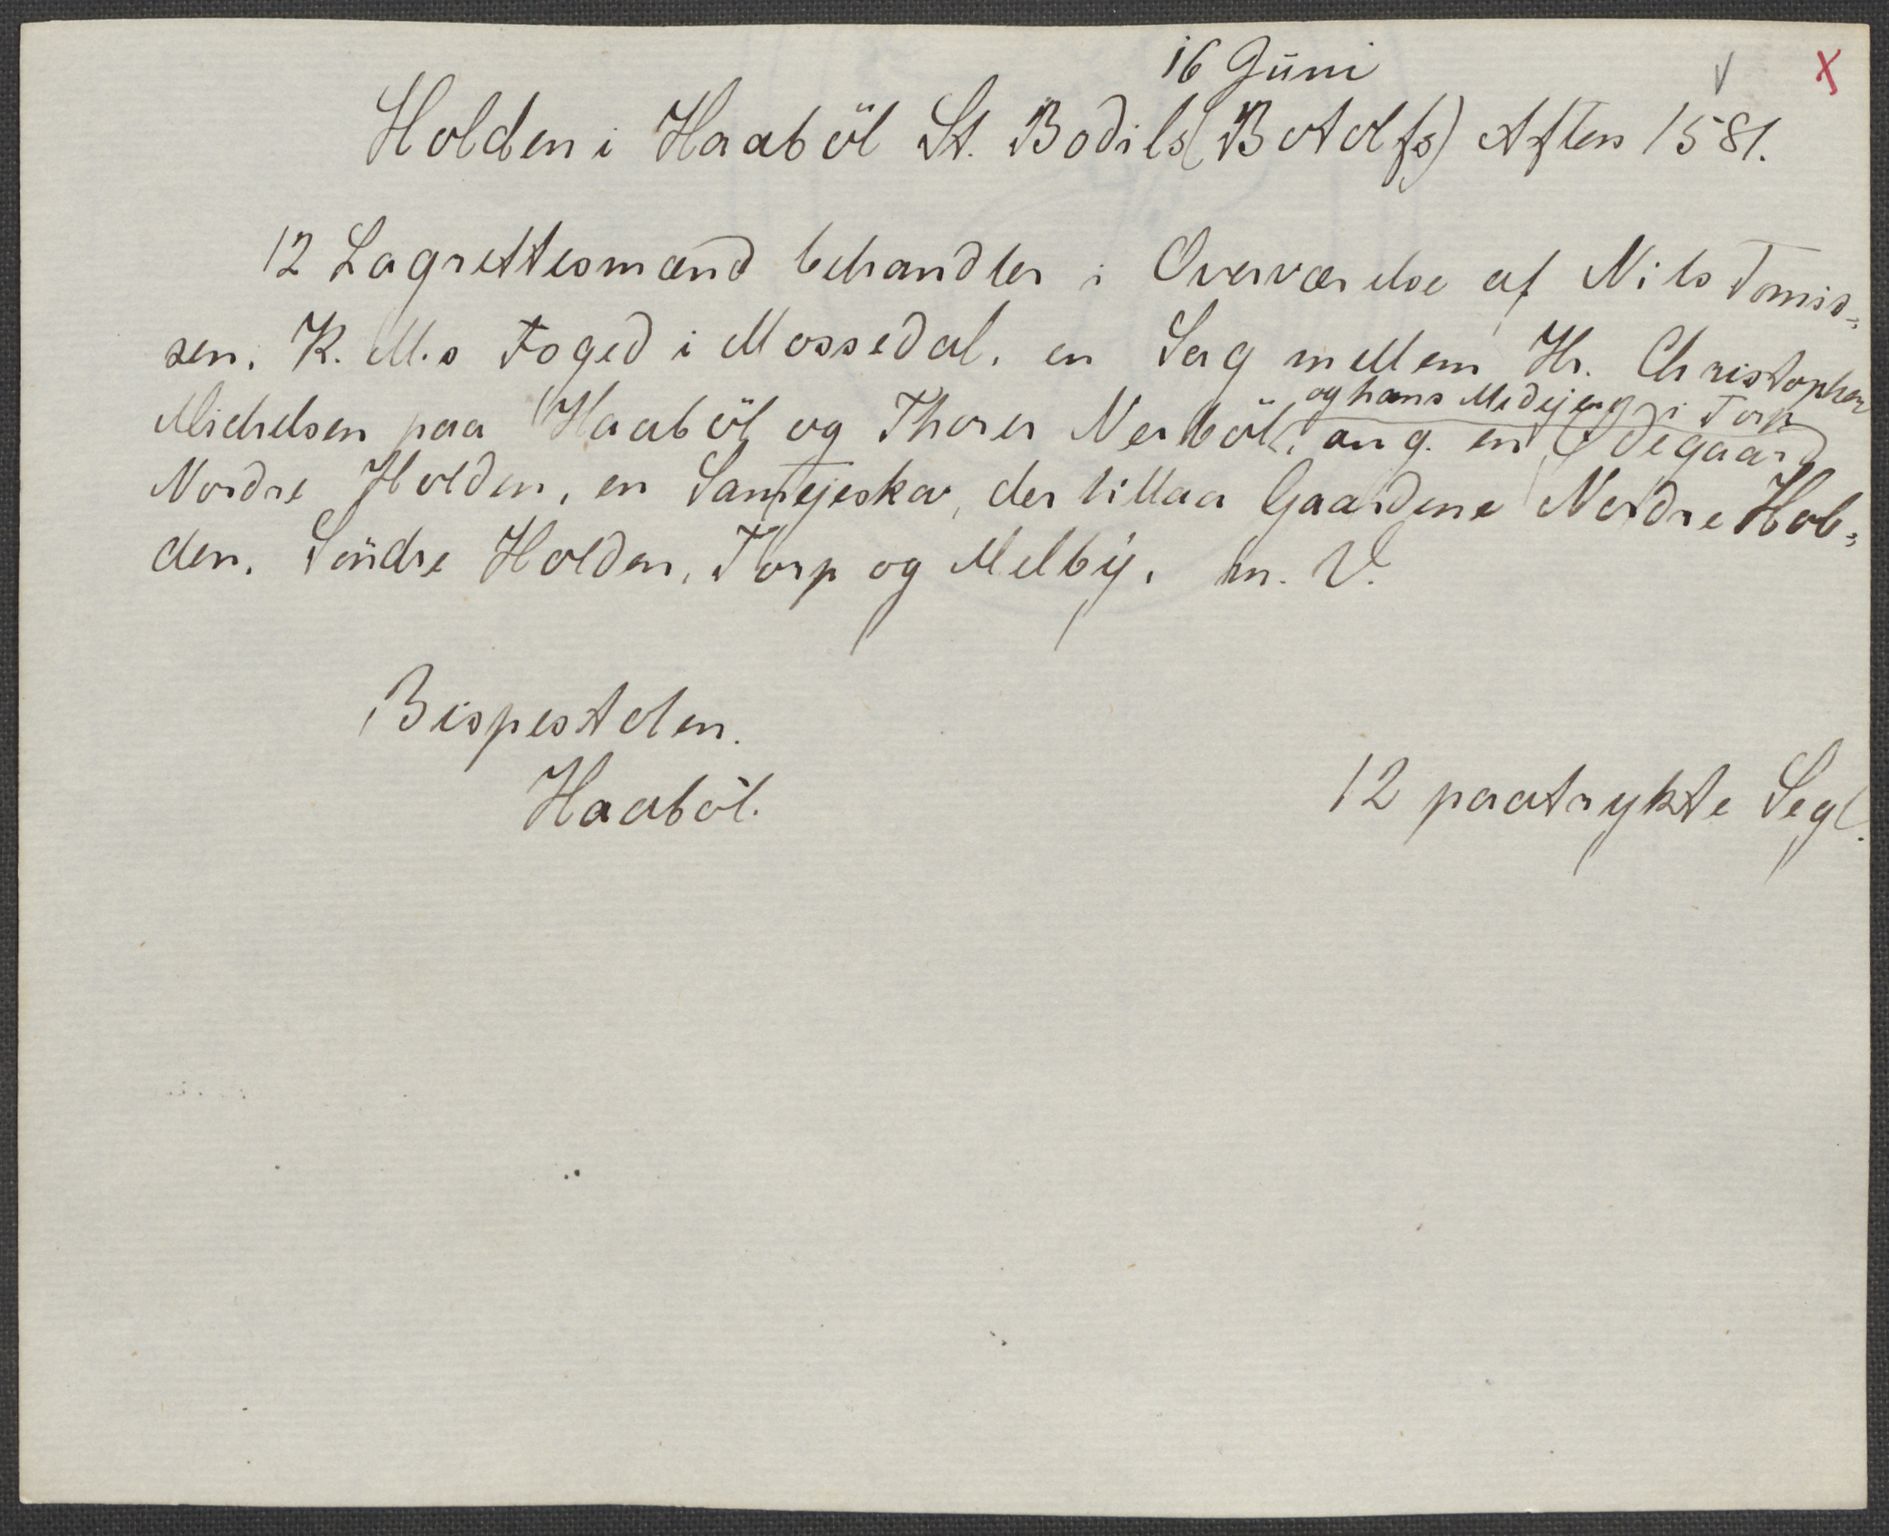 16 Juni
√ X
Holden i Haaböl St. Bodils (Botolfs) Aften 1581.
12 Lagrettesmænd behandler i Overværelse af Nils Tomis-
sen, K. M.s Foged i Mossedal, en Sag mellem Hr. Christopher
Michelsen paa Haaböl og Thorer Nerböl, og hans Medejere i Torp ang. en Ødegaard
Nordre Holden, en Samejeskov, der tillaa Gaardene Nordre Hol-
den, Söndre Holden, Torp og Melby. m. V.
Bispestolen.
Haaböl.
12 paatrykte Segl.